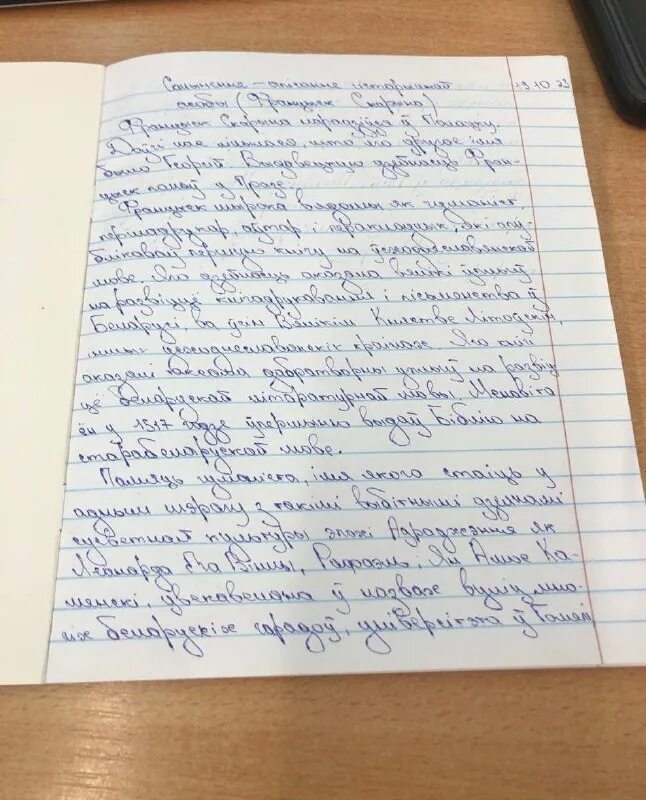 Сачыненне – апісанне гістарычнай 19.10.23
асобы (Францыск Скарына)
Францыск Скарына нарадзіўся ў Полацку.
Доўгі час лічылася, што яго другое імя
было Георгій. Выдавецкую дзейнасць Фран-
цыск пачаў у Празе.
Францыск шырока вядомы як гуманіст,
першадрукар, аўтар і перакладчык, які апу-
блікаваў першую кнігу на ўсходнеславянскай
мове. Яго дзейнасць аказала вялікі ўплыў
на развіццё кнігадрукавання і пісьменства ў
Беларусі, ва ўсім Вялікім Княстве Літоўскім,
іншых усходнеславянскіх краінах. Яго кнігі
аказалі таксама дабратворны уплыў на развіц-
цё беларускай літаратурнай мовы. Менавіта
ён у 1517 годзе ўпершыню выдаў Біблію на
старабеларускай мове.
Памяць гуманіста, імя якога стаіць у
адным шэрагу з такімі выбітнымі дзеячамі
сусветнай культуры эпохі Адраджэння як
Леанарда да Вінчы, Рафаэль, Ян Амос Ка-
менскі, увекавечана ў назвах вуліц мно-
гіх беларускіх гарадоў, універсітэта ў Гомелі